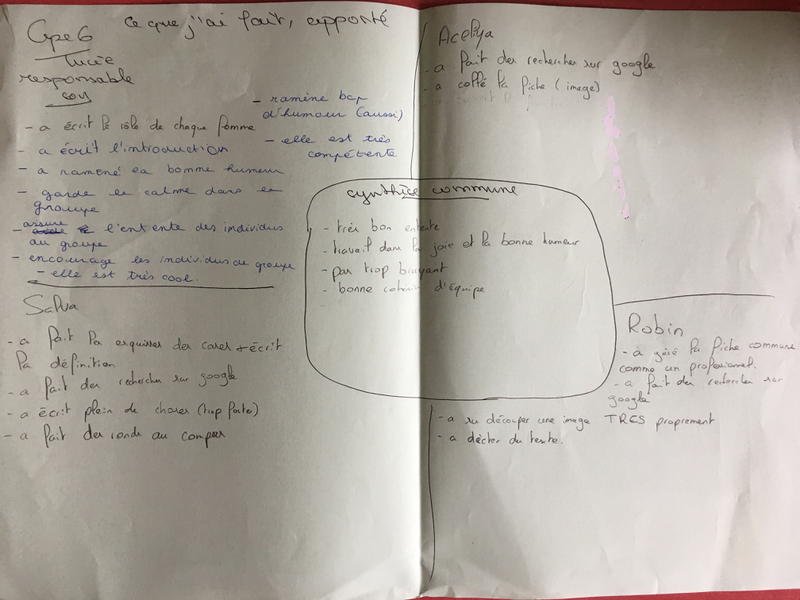 Gpe 6
ce que j'ai fait, apporté
Lucie
responsable
- a écrit le rôle de chaque femme
- a écrit l'introduction
- a ramené sa bonne humeur
- garde le calme dans le
groupe
- assure l'entente des individus
au groupe
- encourage les individus de groupe
- elle est très cool.
- ramène bcp
d'humour (aussi)
- elle est très
compétente
Acelya
- a fait des recherches sur google
- a collé la fiche (image)
cynthèse commune
- très bon entente
- travail dans la joie et la bonne humeur
- pas trop bruyant
- bonne d'équipe
Salva
- a fait la esquisses des cases + écrit
la définition
- a fait des recherches sur google
- a écrit plein de choses (trop forte)
- a fait des ronds au compas
Robin
- a géré la fiche commune
comme un professionnel.
- a fait des recherches sur
google
- a su découper une image TRES proprement
- a dicter du texte.